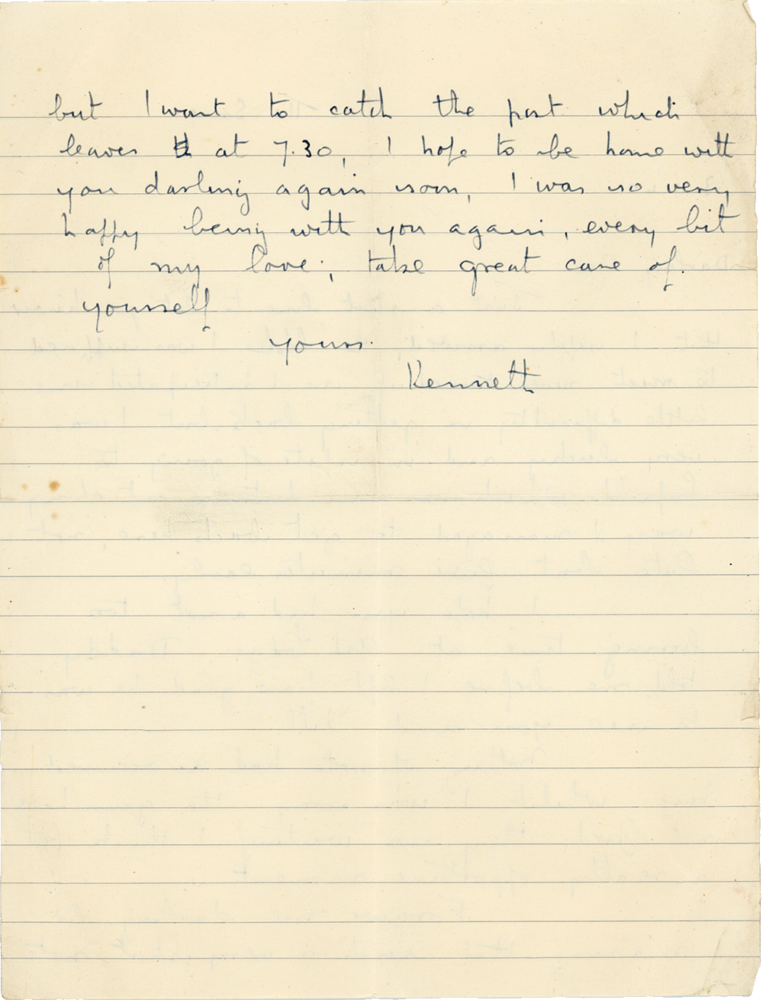 but I want to catch the post which
leaves at 7.30, I hope to be home with
you darling again soon, I was so very
happy being with you again, every bit
of my love; take great care of
yourself
yours.
Kenneth